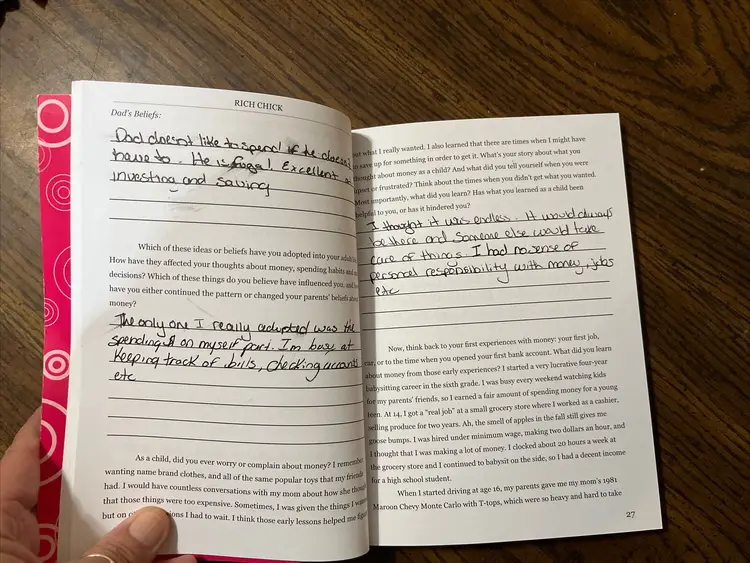 RICH CHICK
Dad's Beliefs:
Dad doesn't like to spend if he doesn't
have to. He is frugal Excellent
investing and saving
Which of these ideas or beliefs have you adopted into your adult
How have they affected your thoughts about money, spending habits and
decisions? Which of these things do you believe have influenced you, and
have you either continued the pattern or changed your parents' beliefs about
money?
The only one I really adopted was the
spending on myself part. I'm busy at
keeping track of bills, checking accounts
etc
As a child, did you ever worry or complain about money? I remember
wanting name brand clothes, and all of the same popular toys that my friends
had. I would have countless conversations with my mom about how she
that those things were too expensive. Sometimes, I was given the things I
but on I had to wait. I think those early lessons helped me
out what I really wanted. I also learned that there are times when I might have
to save up for something in order to get it. What's your story about what you
thought about money as a child? And what did you tell yourself when you were
upset or frustrated? Think about the times when you didn't get what you wanted.
Most importantly, what did you learn? Has what you learned as a child been
helpful to you, or has it hindered you?
I thought it was endless. It would always
be there and someone else would take
care of things. I had no sense of
personal responsibility with money, jobs
etc
Now, think back to your first experiences with money: your first job,
car, or to the time when you opened your first bank account. What did you learn
about money from those early experiences? I started a very lucrative four-year
babysitting career in the sixth grade. I was busy every weekend watching kids
for my parents' friends, so I earned a fair amount of spending money for a young
teen. At 14, I got a "real job" at a small grocery store where I worked as a cashier,
selling produce for two years. Ah, the smell of apples in the fall still gives me
goose bumps. I was hired under minimum wage, making two dollars an hour, and
I thought that I was making a lot of money. I clocked about 20 hours a week at
the grocery store and I continued to babysit on the side, so I had a decent income
for a high school student.
When I started driving at age 16, my parents gave me my mom's 1981
Maroon Chevy Monte Carlo with T-tops, which were so heavy and hard to take
27